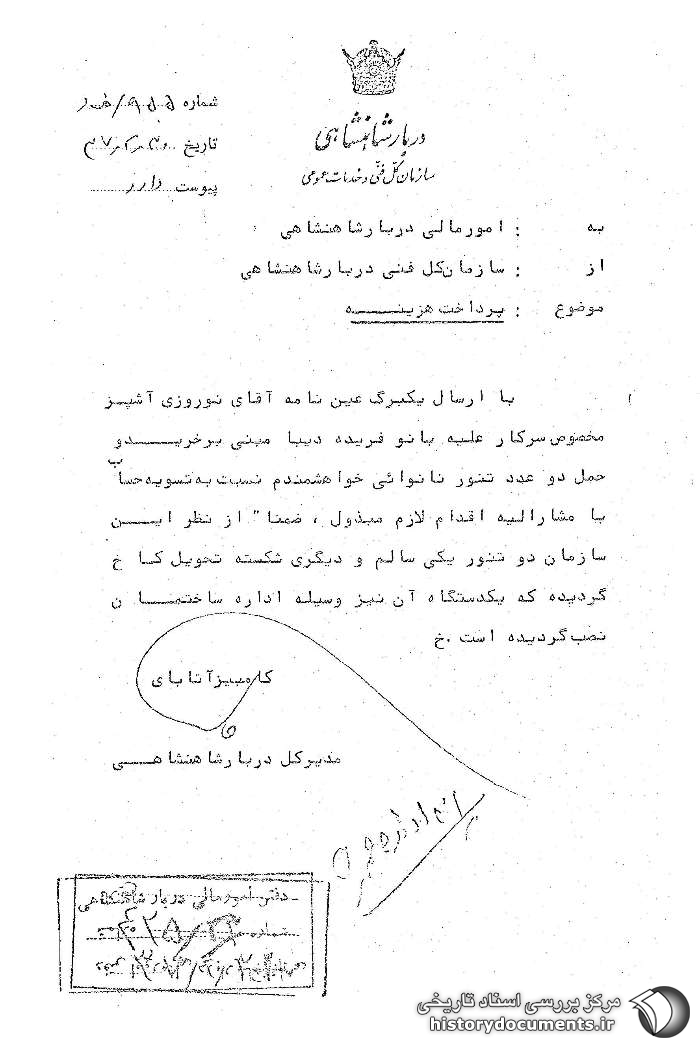 دربار شاهنشاهی
سازمان کل فنی و خدمات عمومی
شماره
تاریخ
پیوست دارد
به : امور مالی دربار شاهنشاهی
از : سازمان کل فنی دربار شاهنشاهی
موضوع : پرداخت هزینــــه
با ارسال یکبرگ عین نامه آقای نوروزی آشپز
مخصوص سرکار علیه بانو فریده دیبا مبنی برخریــــدو
حمل دو عدد تنور نانوائی خواهشمندم نسبت به تسویه حساب
با مشارالیه اقدام لازم مبذول ، ضمنا" از نظر ایــــن
سازمان دو تنور یکی سالم و دیگری شکسته تحویل کـا خ
گردیده که یکدستگاه آن نیز وسیله اداره ساختمـــا ن
نصب گردیده است .خ
کامبیزآتابای
مدیرکل دربار شاهنشاهـــی
دفتر امور مالی دربار شاهنشاهی
شماره
مرکز بررسی اسناد تاریخی
historydocuments.ir